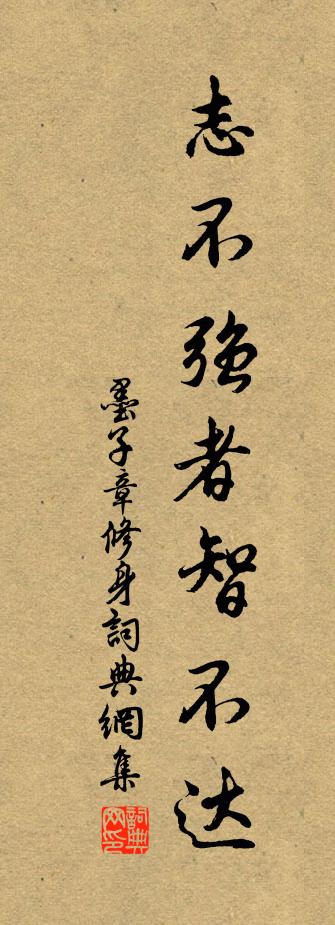 志不强者智不达
墨子章修身詞典網集
詞典网印